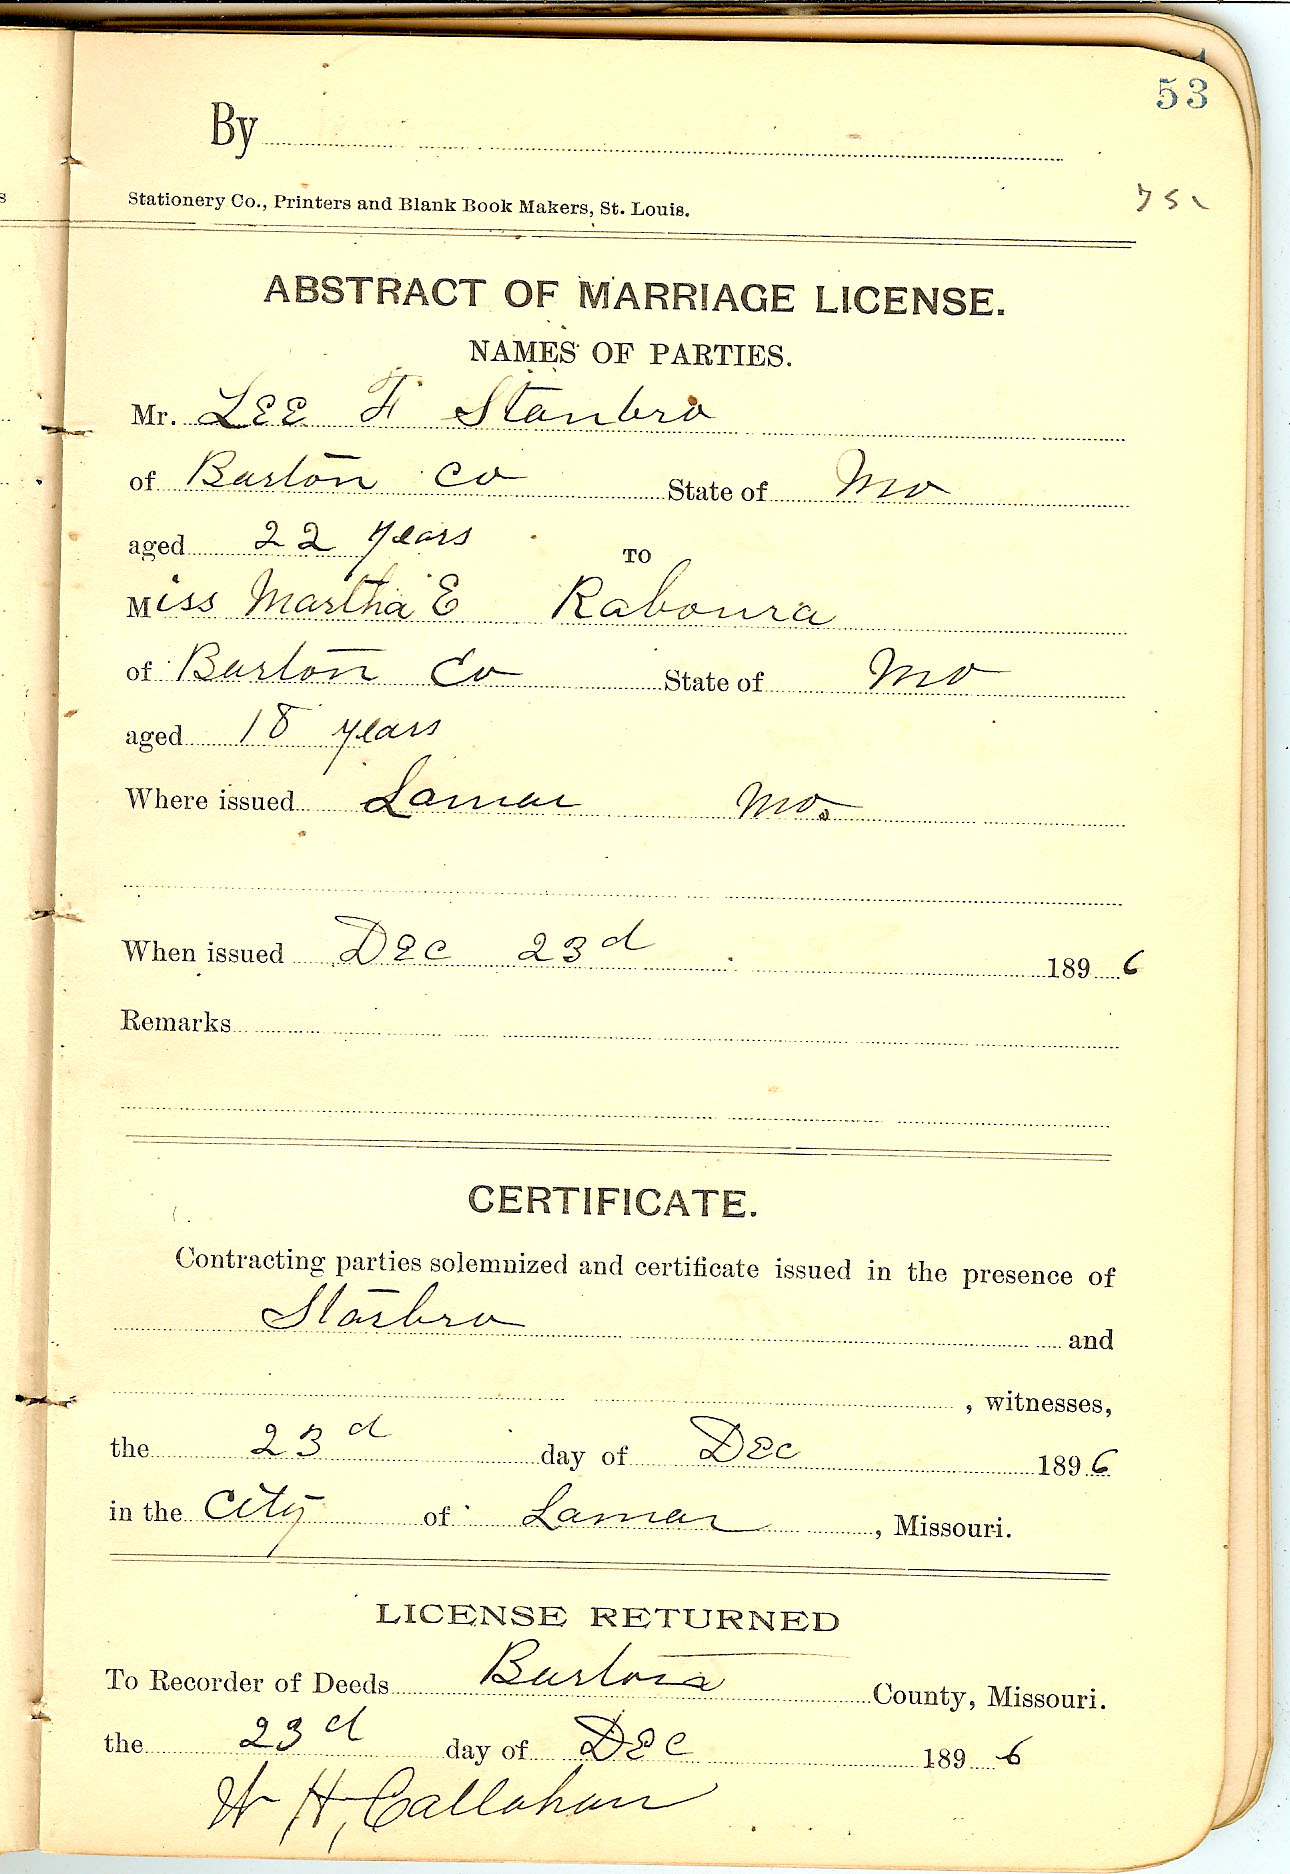 53
By
Stationery Co., Printers and Blank Book Makers, St. Louis.
ABSTRACT OF MARRIAGE LICENSE.
NAMES OF PARTIES.
Mr. Lee F Stanbro
of Barton Co State of Mo
aged 22 years TO
Miss Martha E Raboura
of Barton Co State of Mo
aged 18 years
Where issued Lamar Mo.
When issued Dec 23d 1896
Remarks
CERTIFICATE.
Contracting parties solemnized and certificate issued in the presence of
and
, witnesses,
the 23d day of Dec 1896
in the City of Lamar , Missouri.
LICENSE RETURNED
To Recorder of Deeds Barton County, Missouri.
the 23d day of Dec 1896
W H, Callahan